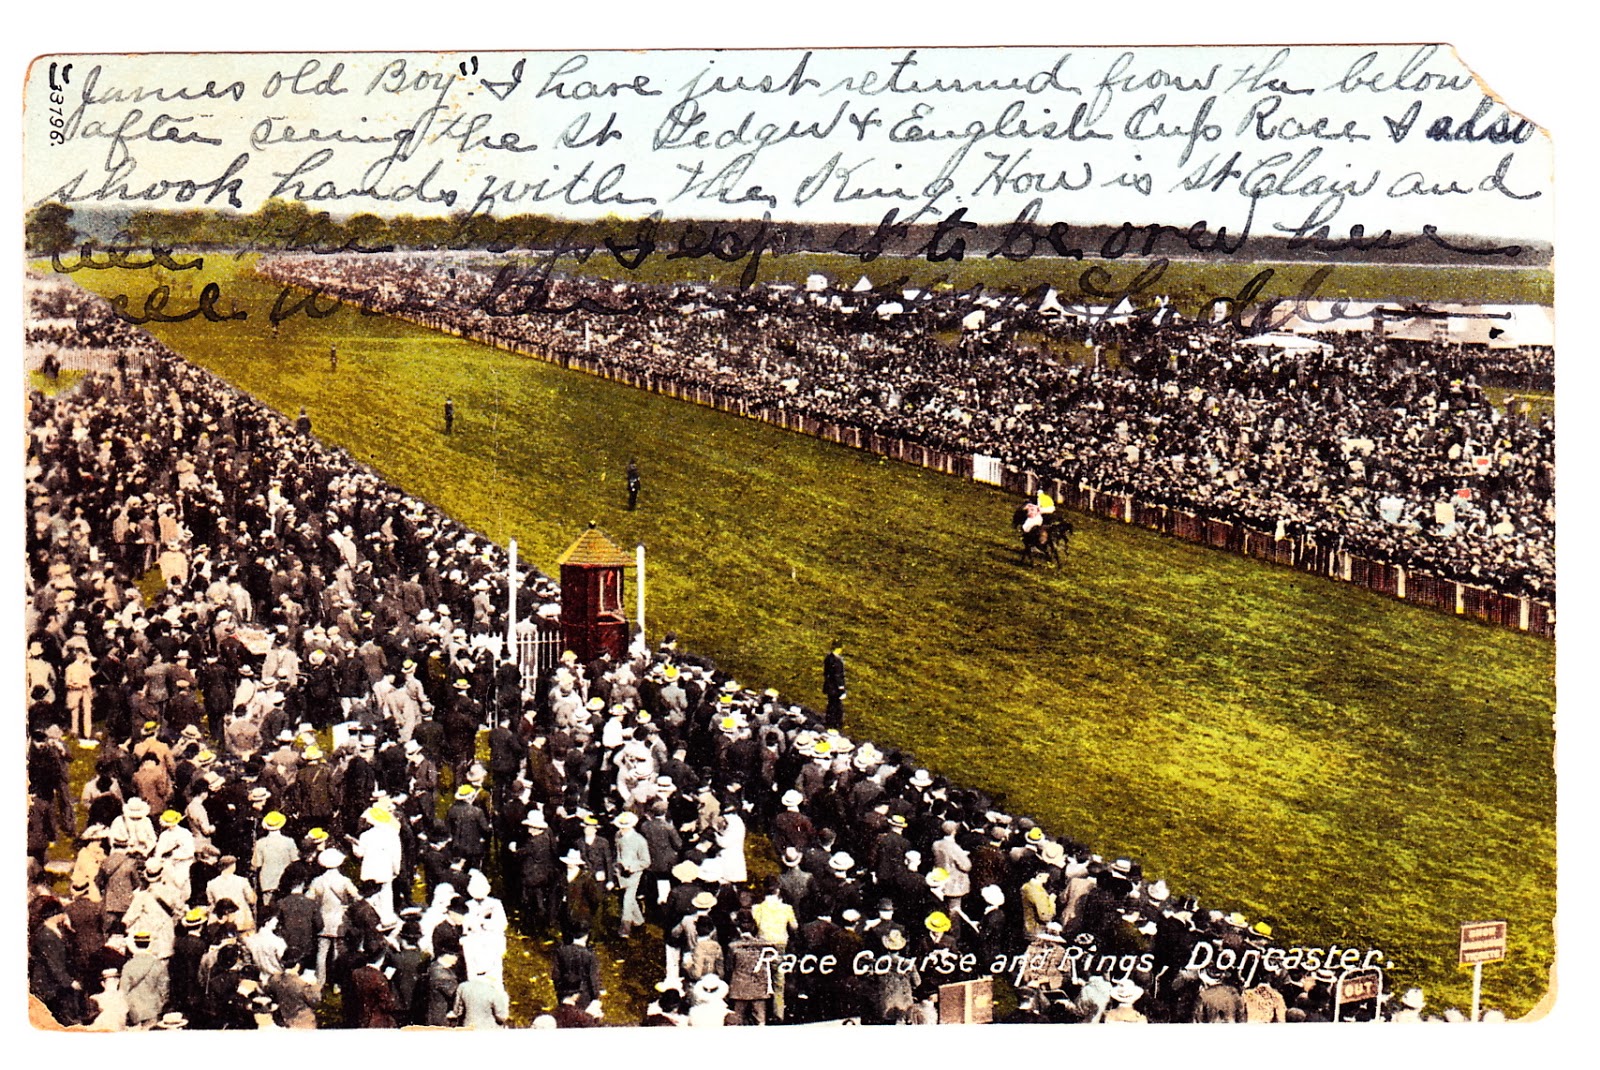 "James old Boy". I have just returned from the below
after seeing the St Ledger & English Cup Race I also
shook hands with the King. How is St Clair and
all the boys I expect to be over here
all
13796.
Race Course and Rings, Doncaster.
OUT